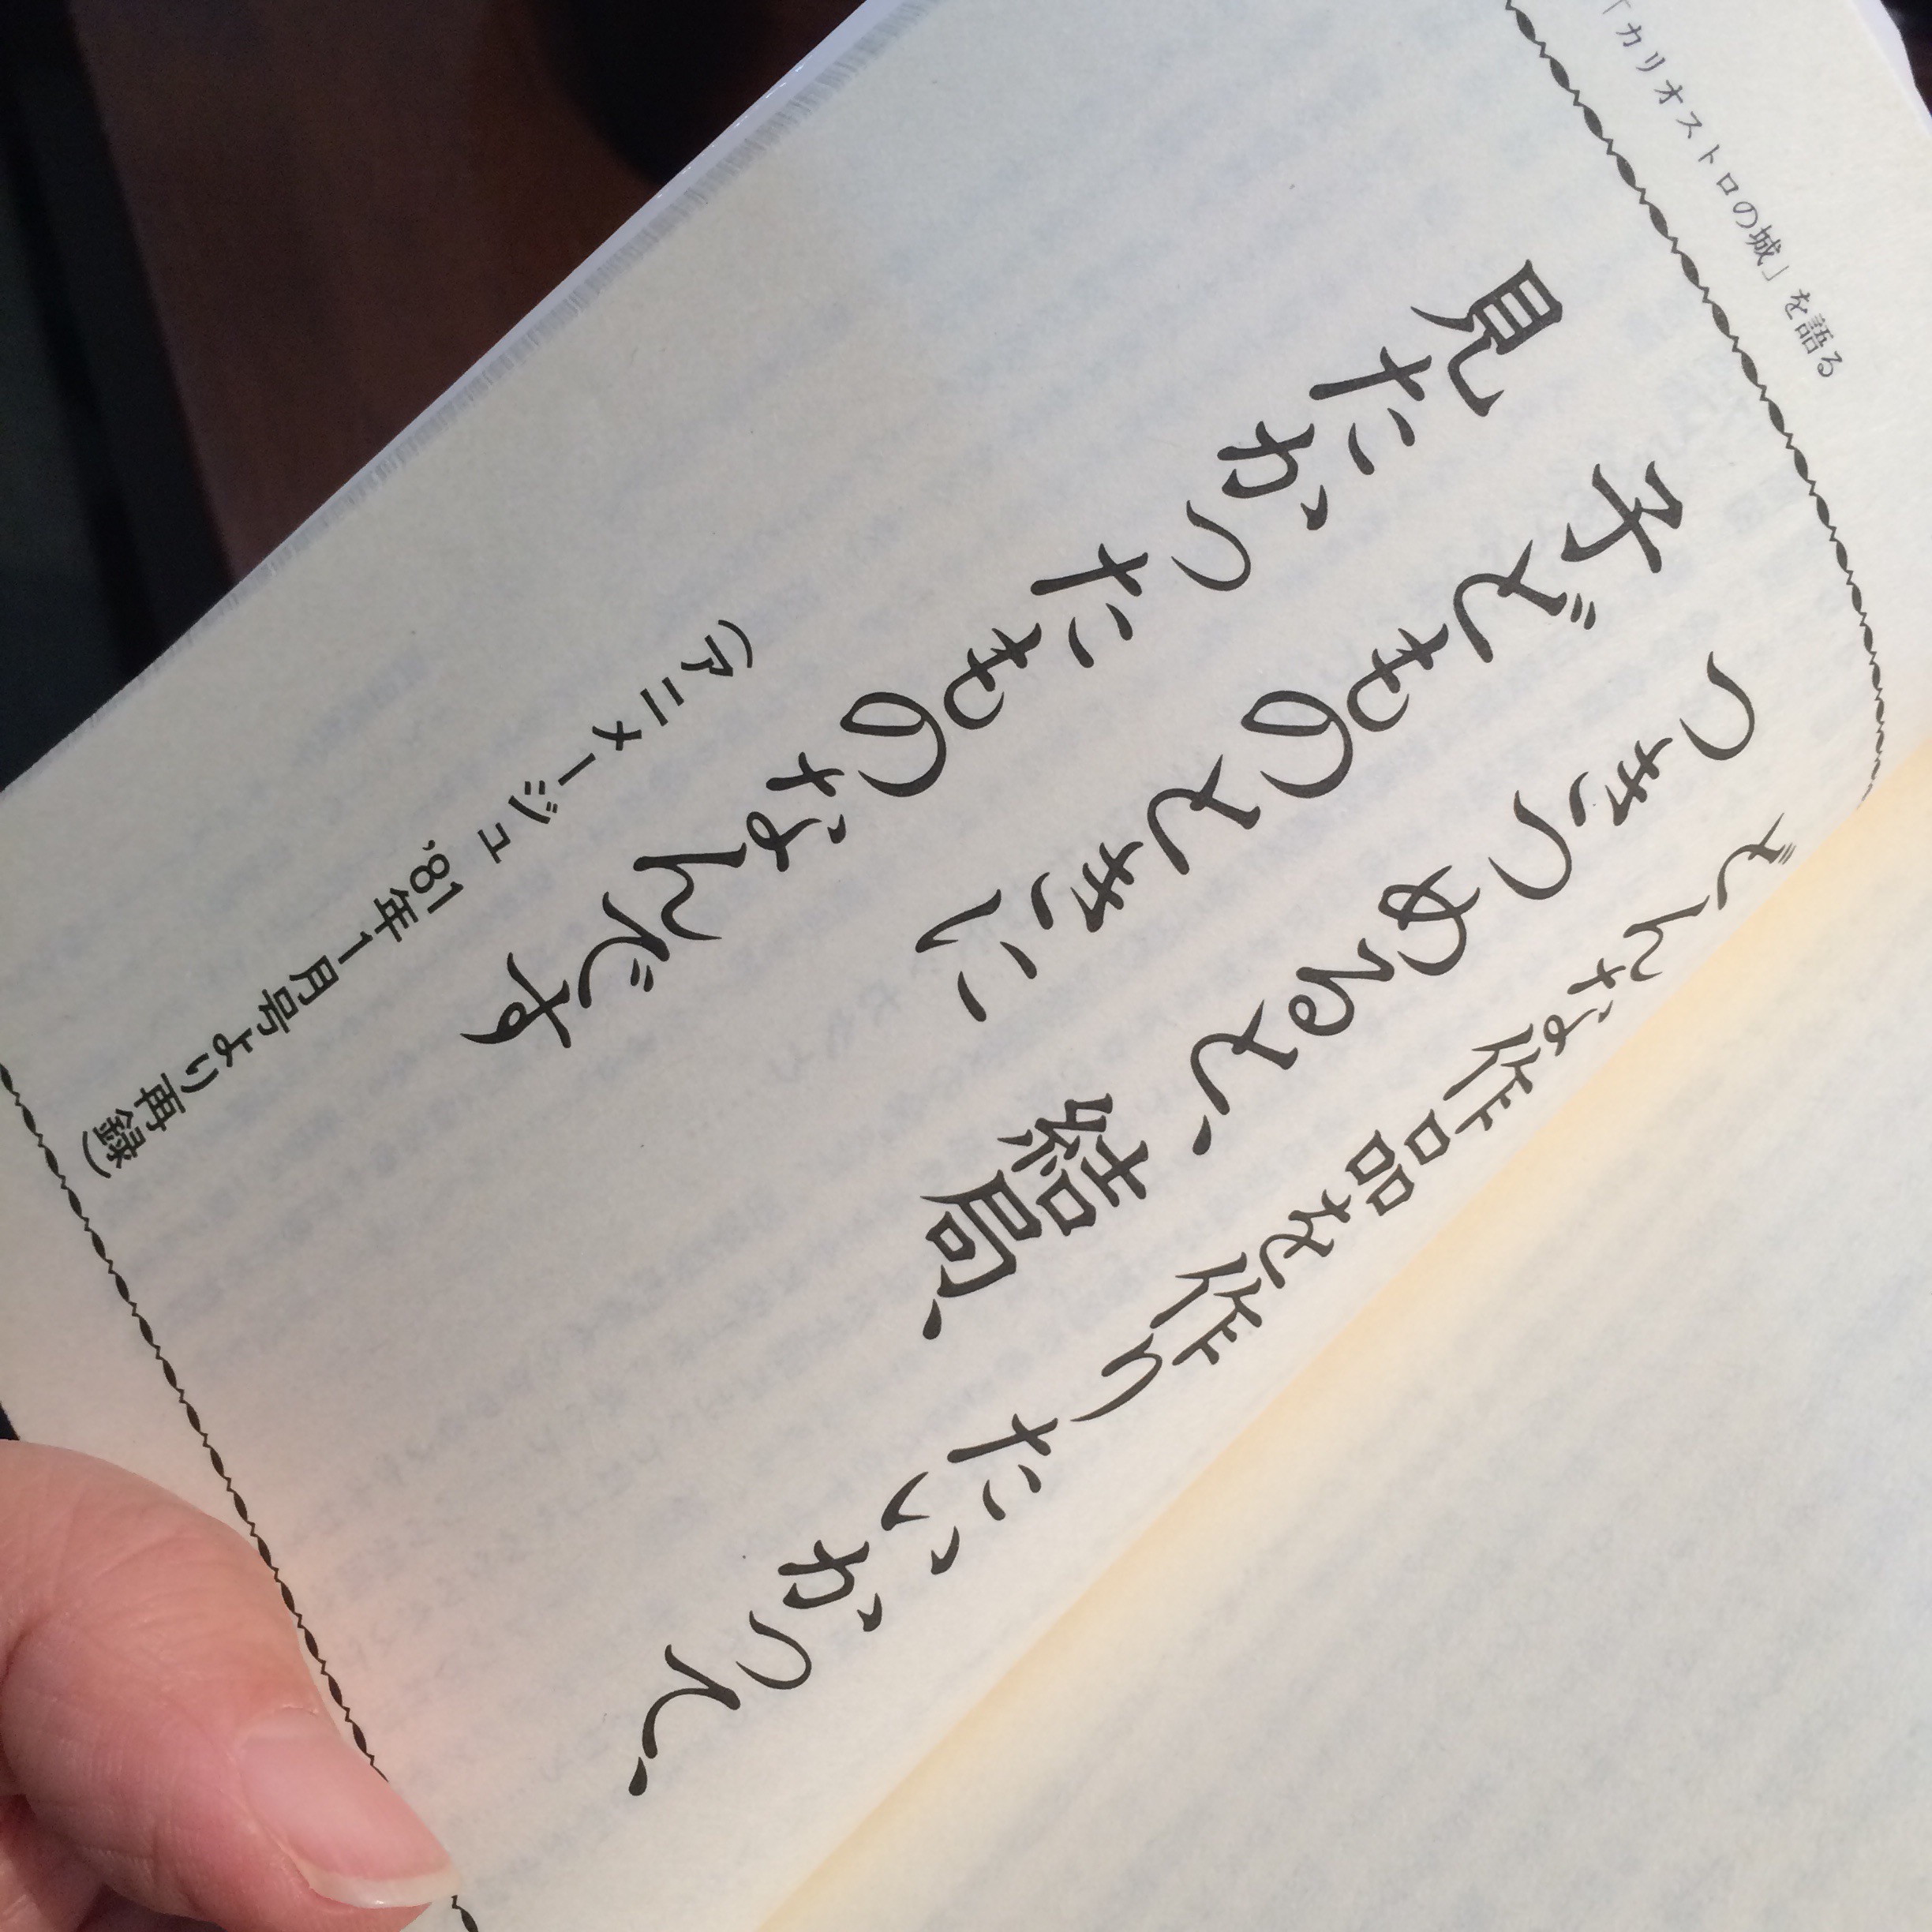 「カリオストロの城」を語る
どんな作品を作りたいかって、
つきつめると、結局、
子どものときに
見たかったものなんです
(アニメージュ '81年1月号より再録)